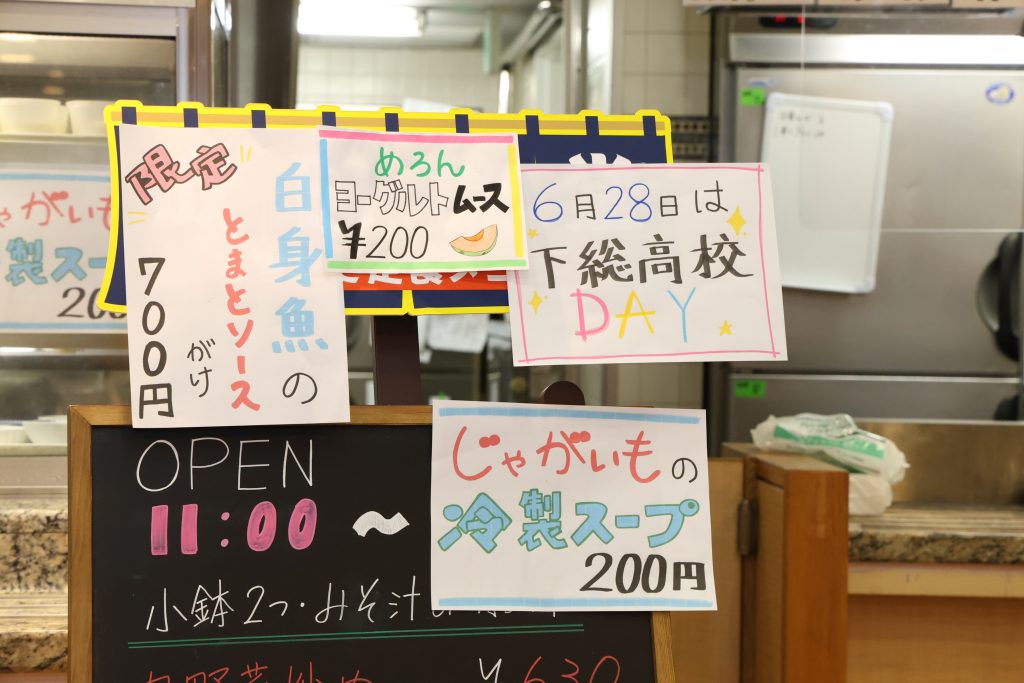 限定
白身魚の
とまとソース
がけ
700円
めろん
ヨーグルトムース
¥200
6月28日は
下総高校
DAY
じゃがいもの
冷製スープ
200円
OPEN
11:00〜
小鉢2つ・みそ汁
¥630
じゃがいも
製スー
200